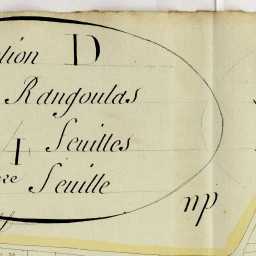 tion D
Rangoulas
4 Feuilles
re Feuille
np